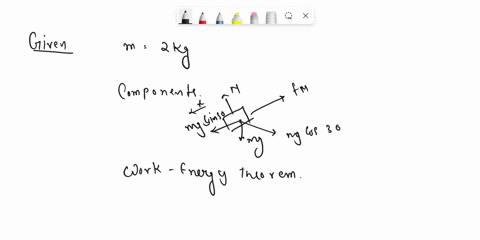 Given
m = 2kg
Components.
x
N
fM
mg Sin30
mg Cos 30
mg
Work - Energy theorem.